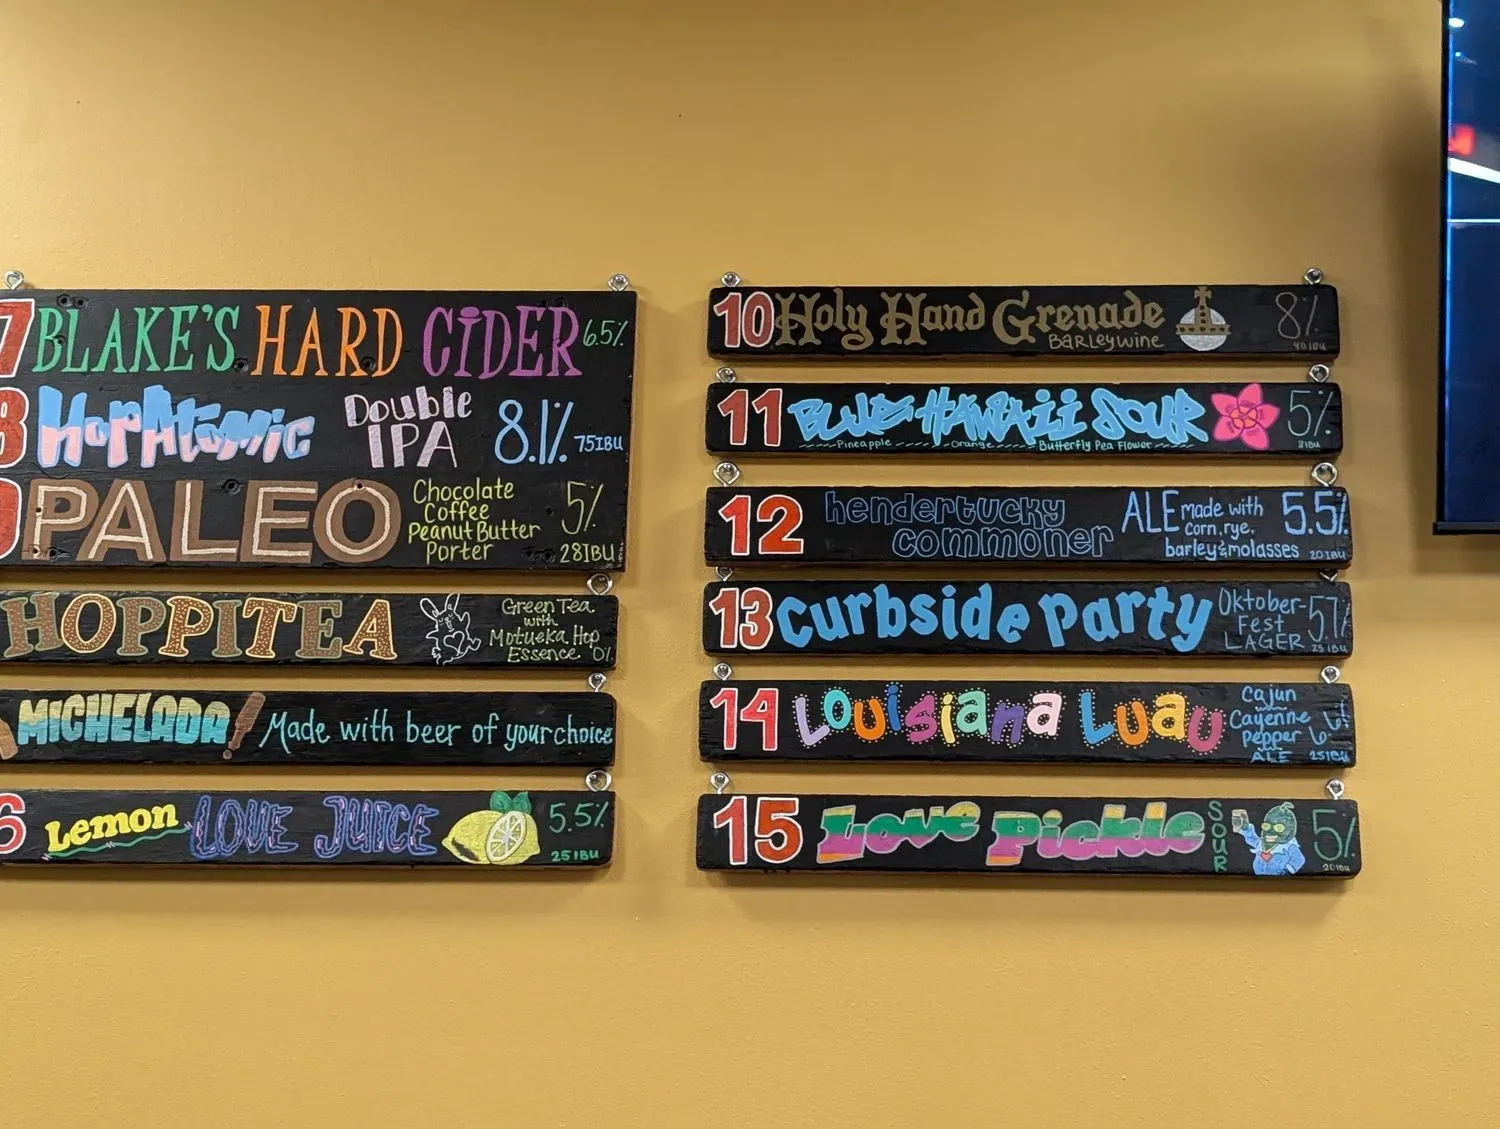 7 BLAKE'S HARD CIDER 6.5%
8 HopAtomic Double IPA 8.1% 75 IBU
9 PALEO Chocolate Coffee Peanut Butter Porter 5% 28 IBU
HOPPITEA Green Tea with Motueka Hop Essence 0%
MICHELADA! Made with beer of your choice
6 Lemon LOVE JUICE 5.5% 25 IBU
10 Holy Hand Grenade BARLEYWINE 8% 40 IBU
11 BLUE HAWAII SOUR 5% 8 IBU
Pineapple Orange Butterfly Pea Flower
12 hendertucky commoner ALE made with corn, rye, barley & molasses 5.5% 20 IBU
13 Curbside Party Oktober-Fest LAGER 5.1% 25 IBU
14 Louisiana Luau Cajun Cayenne Pepper ALE 25 IBU
15 Love Pickle SOUR 5% 20 IBU